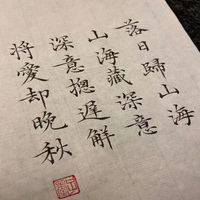 落日歸山海
山海藏深意
深意摠遲解
將愛却晚秋